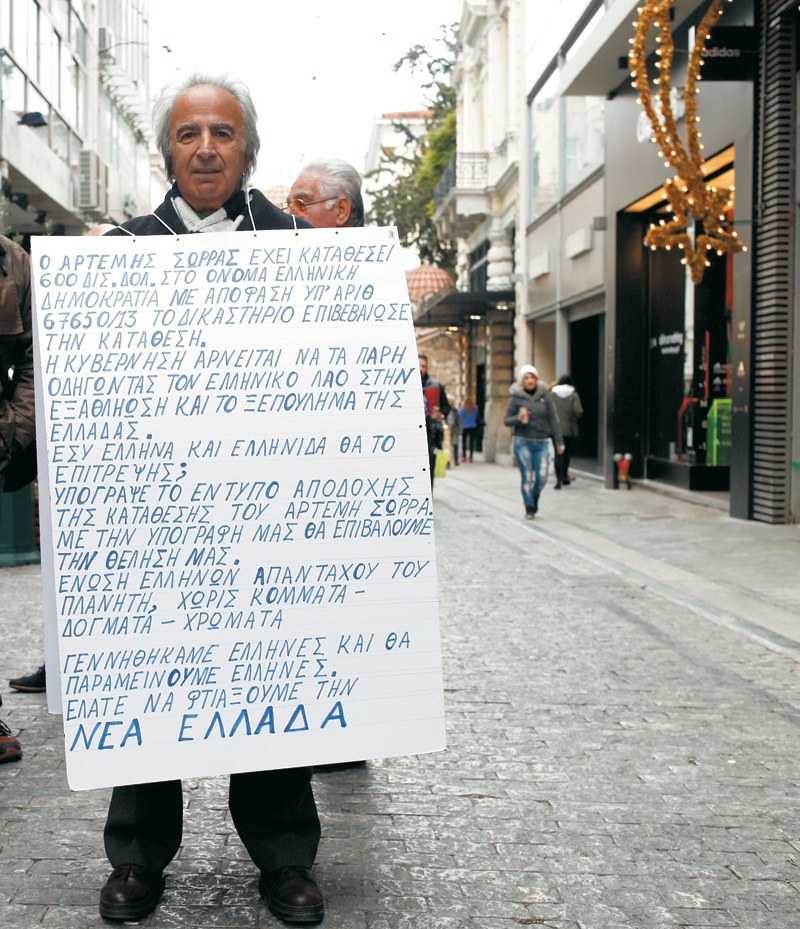 Ο ΑΡΤΕΜΗΣ ΣΩΡΡΑΣ ΕΧΕΙ ΚΑΤΑΘΕΣΕΙ
600 ΔΙΣ. ΔΟΛ. ΣΤΟ ΟΝΟΜΑ ΕΛΛΗΝΙΚΗ
ΔΗΜΟΚΡΑΤΙΑ ΜΕ ΑΠΟΦΑΣΗ ΥΠ' ΑΡΙΘ
67650/13 ΤΟ ΔΙΚΑΣΤΗΡΙΟ ΕΠΙΒΕΒΑΙΩΣΕ
ΤΗΝ ΚΑΤΑΘΕΣΗ.
Η ΚΥΒΕΡΝΗΣΗ ΑΡΝΕΙΤΑΙ ΝΑ ΤΑ ΠΑΡΗ
ΟΔΗΓΩΝΤΑΣ ΤΟΝ ΕΛΛΗΝΙΚΟ ΛΑΟ ΣΤΗΝ
ΕΞΑΘΛΗΩΣΗ ΚΑΙ ΤΟ ΞΕΠΟΥΛΗΜΑ ΤΗΣ
ΕΛΛΑΔΑΣ.
ΕΣΥ ΕΛΛΗΝΑ ΚΑΙ ΕΛΛΗΝΙΔΑ ΘΑ ΤΟ
ΕΠΙΤΡΕΨΗΣ;
ΥΠΟΓΡΑΨΕ ΤΟ ΕΝΤΥΠΟ ΑΠΟΔΟΧΗΣ
ΤΗΣ ΚΑΤΑΘΕΣΗΣ ΤΟΥ ΑΡΤΕΜΗ ΣΩΡΡΑ.
ΜΕ ΤΗΝ ΥΠΟΓΡΑΦΗ ΜΑΣ ΘΑ ΕΠΙΒΑΛΟΥΜΕ
ΤΗΝ ΘΕΛΗΣΗ ΜΑΣ.
ΕΝΩΣΗ ΕΛΛΗΝΩΝ ΑΠΑΝΤΑΧΟΥ ΤΟΥ
ΠΛΑΝΗΤΗ, ΧΩΡΙΣ ΚΟΜΜΑΤΑ -
ΔΟΓΜΑΤΑ - ΧΡΩΜΑΤΑ
ΓΕΝΝΗΘΗΚΑΜΕ ΕΛΛΗΝΕΣ ΚΑΙ ΘΑ
ΠΑΡΑΜΕΙΝΟΥΜΕ ΕΛΛΗΝΕΣ.
ΕΛΑΤΕ ΝΑ ΦΤΙΑΞΟΥΜΕ ΤΗΝ
ΝΕΑ ΕΛΛΑΔΑ
adidas